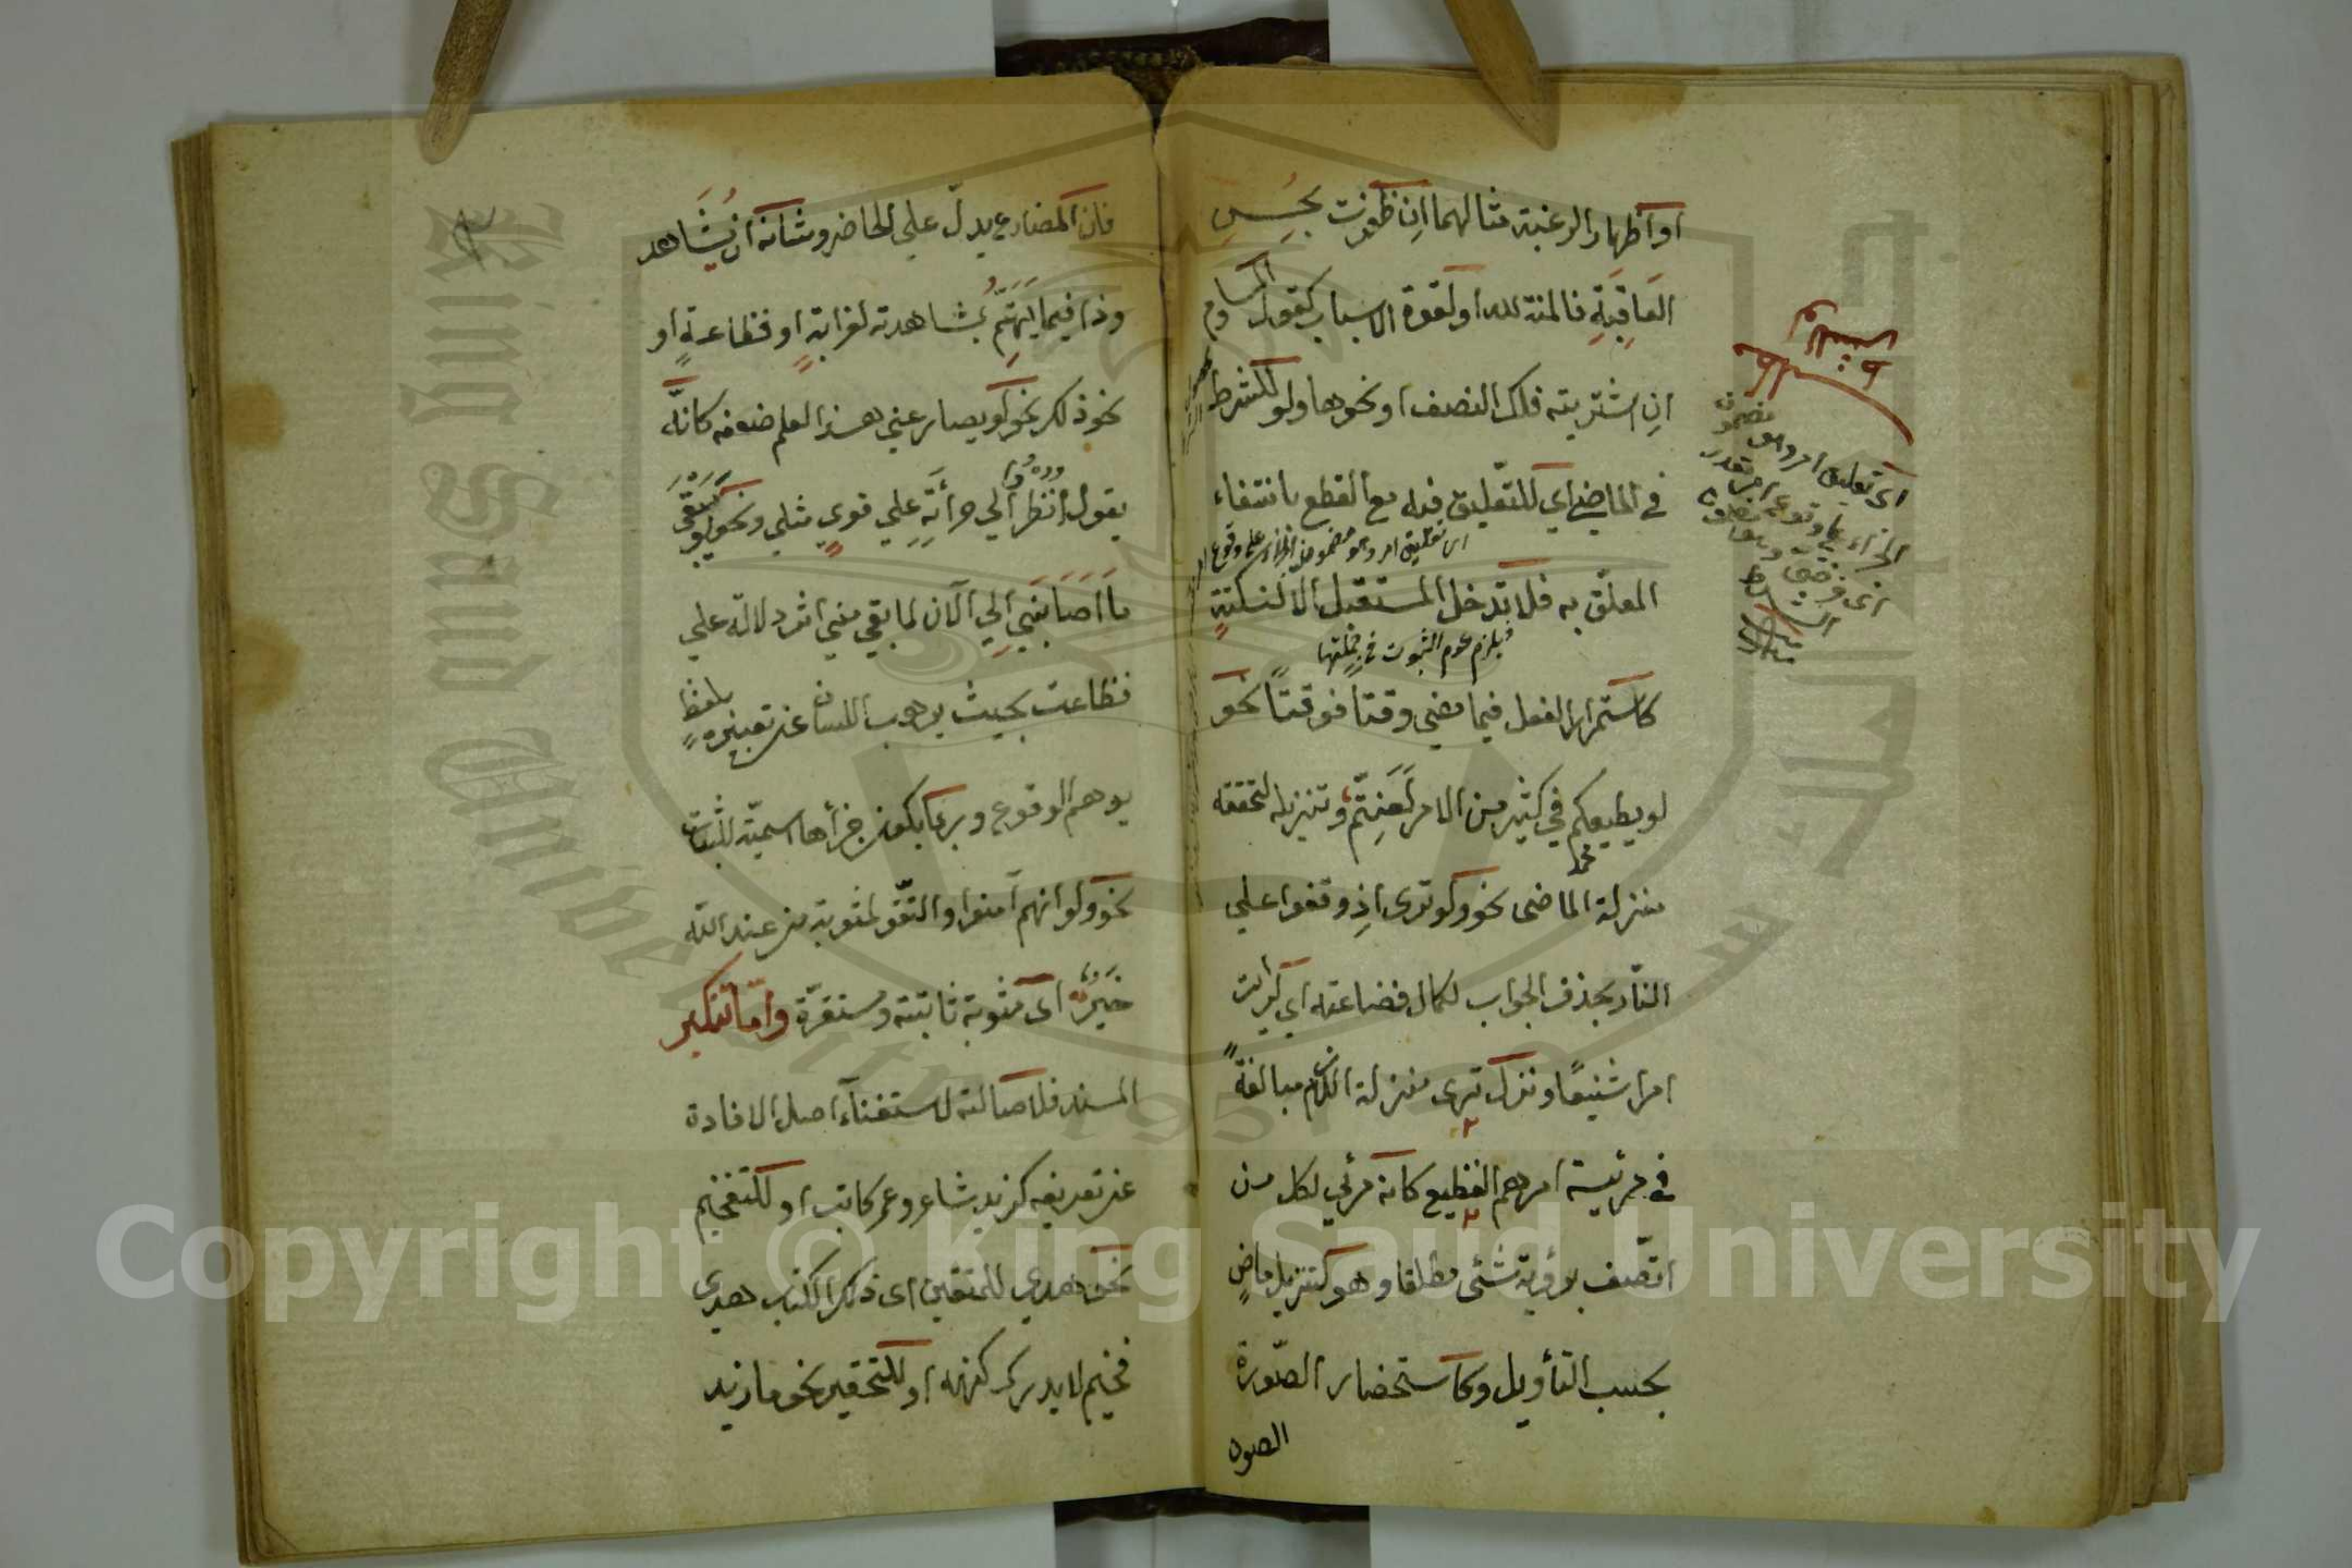 او اظهار الرغبة مثالهما ان ظفرت بحسن
العاقبة فالمنة لله او لقوة الاسباب كقول المساوم
ان اشتريته فلك النصف او نحوها ولو للشرط
في الماضي اي للتعليق فيه مع القطع بانتفاء
اى تعليق امر وهو مضمون الجزاء على وقوع
المعلق به فلا تدخل المستقبل الا لنكتة
فيلزم عدم الثبوت في جملتها
كاستمرار الفعل فيما مضى وقتا فوقتا نحو
لو يطيعكم في كثير من الامر لعنتم وتنزيله لتحققه
منزلة الماضى نحو ولو ترى اذ وقفوا علي
محمد
النار بحذف الجواب لكمال فضاعته اي لرايت
امرا شنيعا ونزل ترى منزلة اللازم مبالغة
في مرئية امرهم الفظيع كانه مرئي لكل من
اتصف برؤية شئى مطلقا وهو كتنزيل ماض
بحسب التأويل وكاستحضار الصورة
الصوره
اى تعليق امر وهو مضمون
الجزاء على وقوع امر مقدر
الشرط
فان المضارع يدل علي الحاضر وشانه ان يشاهد
وذا فيما يهتم بمشاهدته لغرابة او فظاعة او
نحو ذلك نحو لو يصارعني هذا لعلم ضعفه كانه
يقول انظروا الي جرأته علي قوي مثلي ونحو لو يبقي
ما اصابني الي الآن لما بقي مني اثر دلالة علي
فظاعته بحيث يرهب اللسان عن تعبيره بلفظ
يوهم الوقوع وربما يكون جزأها اسمية للثبات
نحو ولو انهم آمنوا واتقو لمثوبة من عند الله
خير اى مثوبة ثابتة ومستقرة واما تنكير
المسند فلاصالته لاستغناء اصل الافادة
عن تعريفه كزيد شاعر وعمر كاتب او للتفخيم
نحو هدي للمتقين اى ذلك الكتاب هدى
فخيم لا يدرك كنهه او للتحقير نحو ما زيد
Copyright © King Saud University